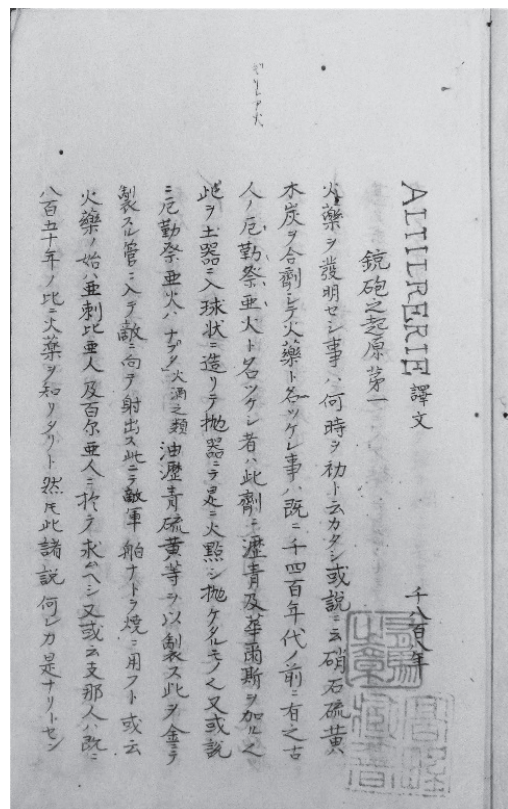 ALTILRERIE譯文
千八百八年
銃砲之起原第一
火藥ヲ發明セシ事ハ何時ヲ初ト云カタシ或説ニ云硝石硫黄
木炭ヲ合劑シテ火藥ト名ツケシ事ハ既ニ千四百年代ノ前ニ有之古
人ノ厄勤祭亜火ト名ツケシ者ハ此劑ニ瀝青及華爾斯ヲ加ルノミ
此ヲ土器ニ入球状ニ造リテ抛器ニテ是ニ火點シ抛ケタルモノ又或説
ニ厄勤祭亜火ハナプタ火油之類油瀝青硫黄等ヲ以製ス此ヲ金ニテ
製スル管ニ入テ敵ニ向テ射出ス此ニテ敵軍舶ナトヲ焼ニ用フト或云
火藥ノ始ハ亜刺比亜人及百尓亜人ニ於テ求ムヘシ又或云支那人ハ既ニ
八百五十年ノ比ニ火藥ヲ知リタリト然𪜈此諸説何レカ是ナリトセン